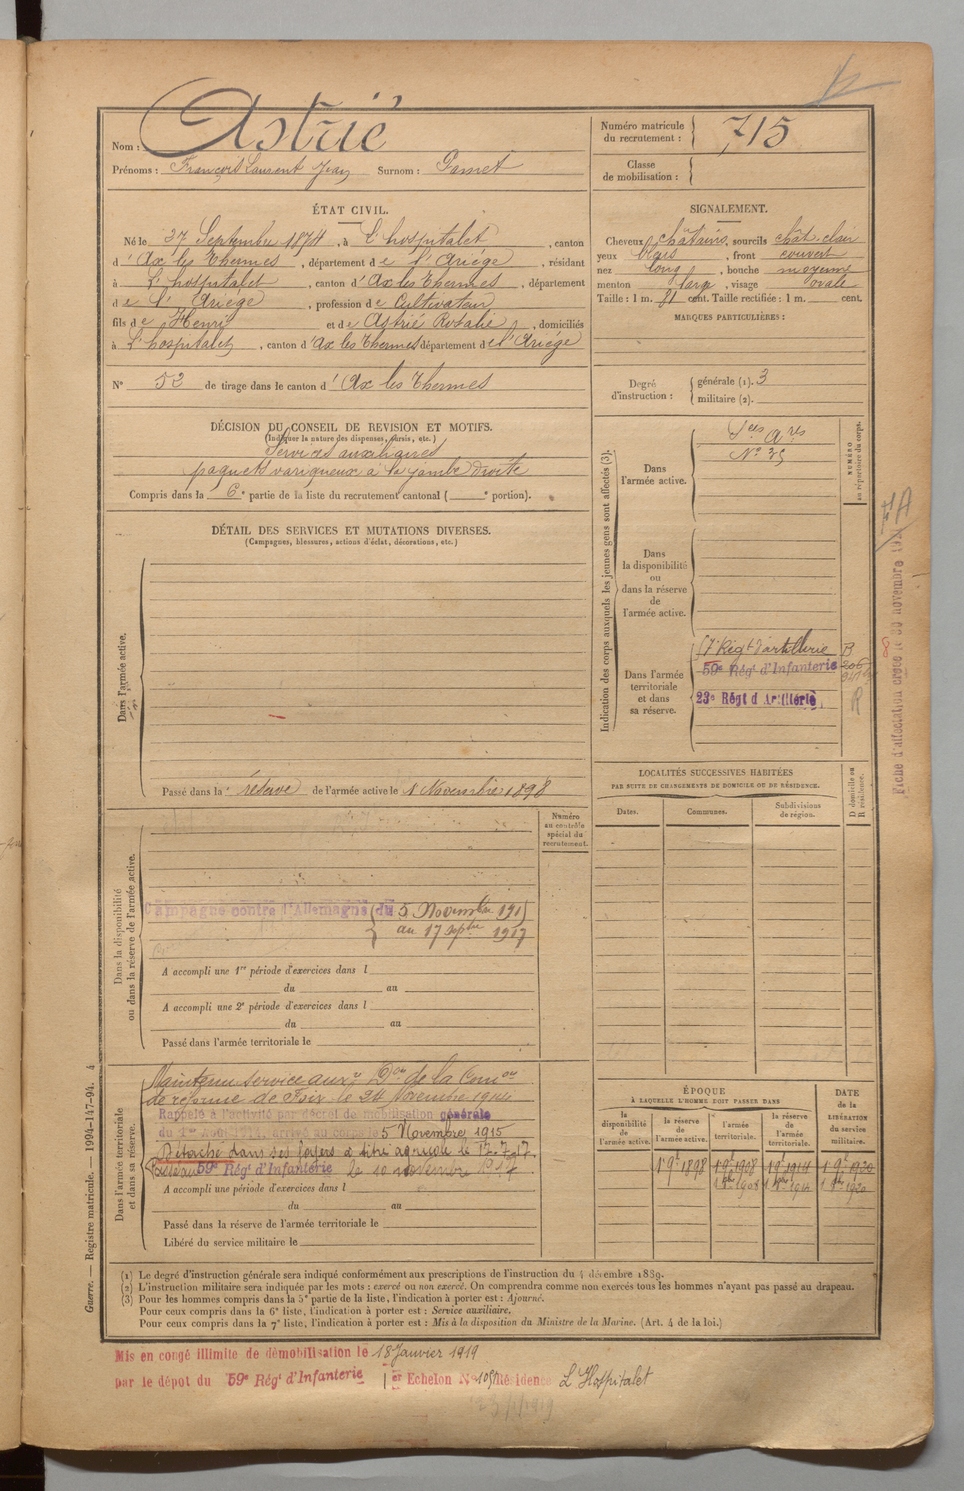 Nom : Astrié
Prénoms : François Laurent Jean Surnom : Gamet
Numéro matricule du recrutement : 715
Classe de mobilisation :
ÉTAT CIVIL.
Né le 27 Septembre 1874, à L'hospitalet, canton
d'Ax les Thermes, département de l'Ariège, résidant
à L'hospitalet, canton d'Ax les Thermes, département
de l'Ariège, profession de Cultivateur
fils de Henri et de Astrié Rosalie, domiciliés
à L'hospitalet, canton d'Ax les Thermes département de l'Ariège
N° 52 de tirage dans le canton d'Ax les Thermes
SIGNALEMENT.
Cheveux châtains, sourcils chât. clair
yeux gris, front couvert
nez long, bouche moyenne
menton large, visage ovale
Taille : 1 m. 71 cent. Taille rectifiée : 1 m. cent.
MARQUES PARTICULIÈRES :
Degré d'instruction : générale (1). 3
militaire (2).
DÉCISION DU CONSEIL DE REVISION ET MOTIFS.
(Indiquer la nature des dispenses, sursis, etc.)
Services auxiliaires
paquets variqueux à la jambe droite
Compris dans la 6e partie de la liste du recrutement cantonal ( e portion).
DÉTAIL DES SERVICES ET MUTATIONS DIVERSES.
(Campagnes, blessures, actions d'éclat, décorations, etc.)
Dans l'armée active.
Passé dans la réserve de l'armée active le 1 Novembre 1898
Indication des corps auxquels les jeunes gens sont affectés (3).
NUMÉRO au répertoire du corps.
Dans l'armée active.
N° 25
Dans la disponibilité ou dans la réserve de l'armée active.
Dans l'armée territoriale et dans sa réserve.
Régt d'artillerie
59e Régt d'Infanterie
23e Régt d'Artillerie
B
R
LOCALITÉS SUCCESSIVES HABITÉES
PAR SUITE DE CHANGEMENTS DE DOMICILE OU DE RÉSIDENCE.
Dates. Communes. Subdivisions de région. D domicile ou R résidence.
Dans la disponibilité ou dans la réserve de l'armée active.
Numéro au contrôle spécial du recrutement.
Campagne contre l'Allemagne du 5 Novembre 1915
au 17 7bre 1917
A accompli une 1re période d'exercices dans l
du au
A accompli une 2e période d'exercices dans l
du au
Passé dans l'armée territoriale le
Dans l'armée territoriale et dans sa réserve.
Maintenu service auxre Don de la Comon
de réforme de Foix le 24 Novembre 1914
Rappelé à l'activité par décret de mobilisation générale
du 1er Août 1914, arrivé au corps le 5 Novembre 1915
Détaché dans ses foyers à titre agricole le 17.7.17
Passé au 59e Régt d'Infanterie le 10 novembre 1917
A accompli une période d'exercices dans l
du au
Passé dans la réserve de l'armée territoriale le
Libéré du service militaire le
ÉPOQUE
À LAQUELLE L'HOMME DOIT PASSER DANS
DATE de la LIBÉRATION du service militaire.
la disponibilité de l'armée active. la réserve de l'armée active. l'armée territoriale. la réserve de l'armée territoriale.
1 9e 1898 1 9e 1908 1 9e 1914 1 9e 1920
1 1908 1 1914 1 1920
(1) Le degré d'instruction générale sera indiqué conformément aux prescriptions de l'instruction du 4 décembre 1889.
(2) L'instruction militaire sera indiquée par les mots : exercé ou non exercé. On comprendra comme non exercés tous les hommes n'ayant pas passé au drapeau.
(3) Pour les hommes compris dans la 5e partie de la liste, l'indication à porter est : Ajourné.
Pour ceux compris dans la 6e liste, l'indication à porter est : Service auxiliaire.
Pour ceux compris dans la 7e liste, l'indication à porter est : Mis à la disposition du Ministre de la Marine. (Art. 4 de la loi.)
Guerre. — Registre matricule. — 1994-147-94. 4
Mis en congé illimité de démobilisation le 18 Janvier 1919
par le dépôt du 59e Régt d'Infanterie 1er Echelon N° Résidence L'Hospitalet